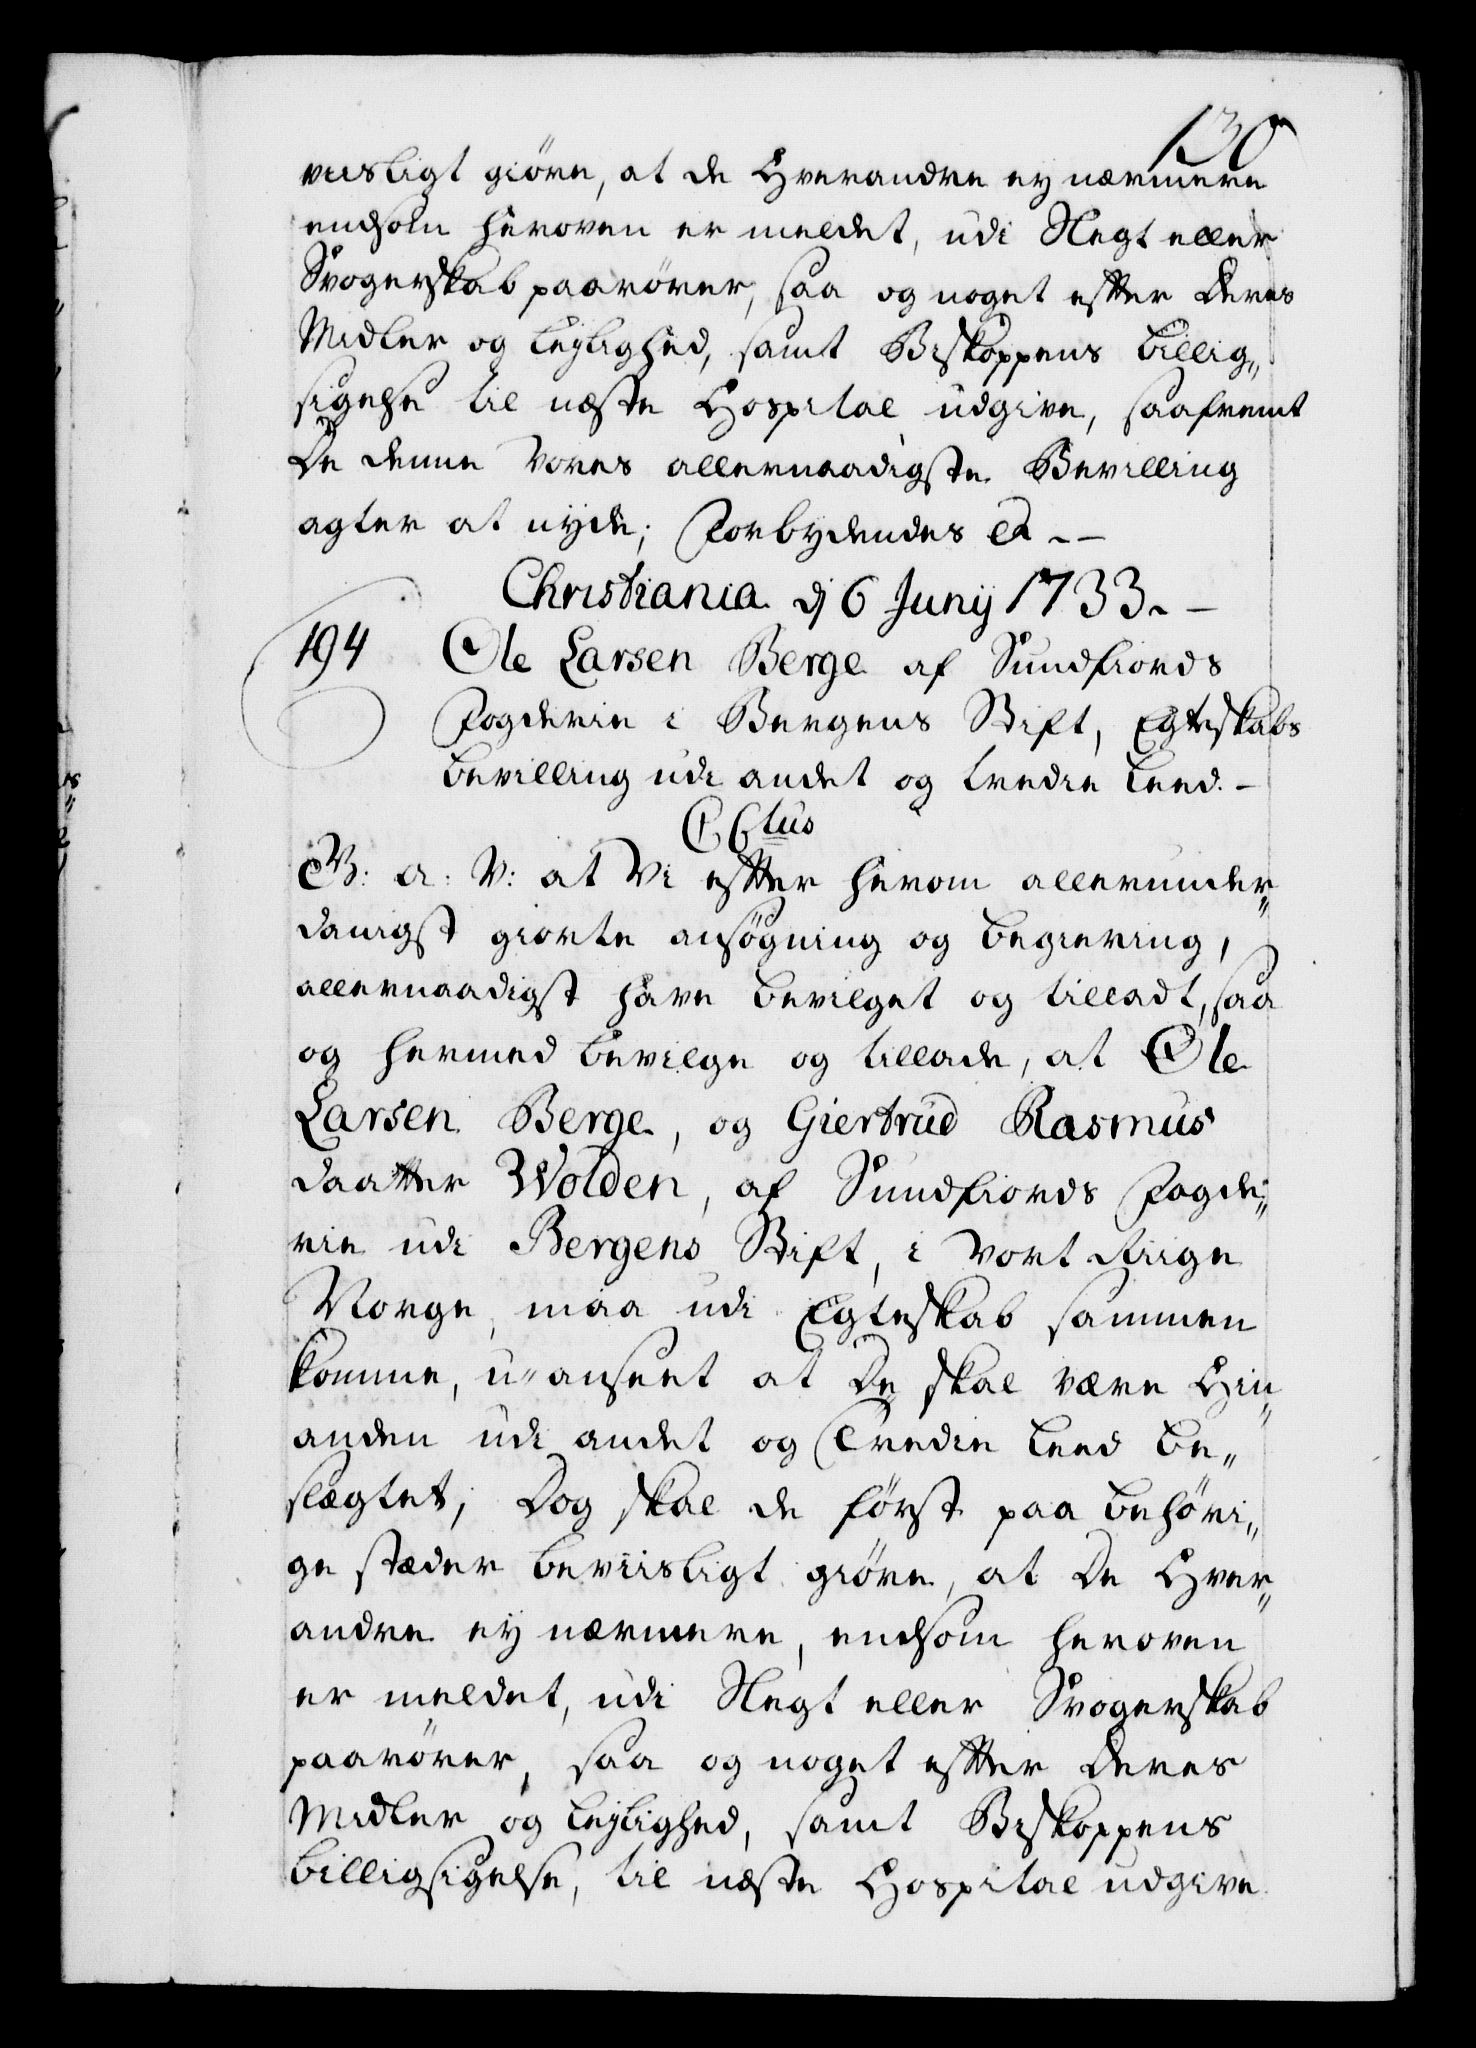 130
viisligt giöre, at de Hverandre ey nærmere
endsom heroven er meldet, udi Slegt eller
Svogerskab paarörer, saa og noget efter deres
Midler og lejlighed, samt Biskoppens billig„
sigelse til næste Hospital udgive, saafremt
De denne Vores allernaadigste Bevilling
agter at nyde; Forbydendes &. –
Christiania dj 6 Junij 1733. –
194 Ole Larsen Berge af Sundfiords
Fogderie i Bergens Stift, Egteskabs
bevilling udi andet og tredie leed. –
C 6tus
G: A: V: at Vi efter herom allerunder„
danigst giorte ansøgning og begiering,
allernaadigst have bevilget og tilladt, saa
og hermed bevilge og tillade, at Ole
Larsen Berge, og Giertrud Rasmus
daatter Wolden, af Sundfiords Fogde„
rie udi Bergens Stift, i Vort Riige
Norge, maa udi Egteskab sammen
komme, u-anseet at De skal være Hin„
anden udi andet og Tredie leed be„
slægtet; Dog skal de först paa behöri„
ge stæder beviisligt giöre, at De Hver„
andre ey nærmere, endsom heroven
er meldet, udi Slegt eller Svogerskab
paarörer, saa og noget efter deres
Midler og lejlighed, samt Biskoppens
billigsigelse, til næste Hospital udgive